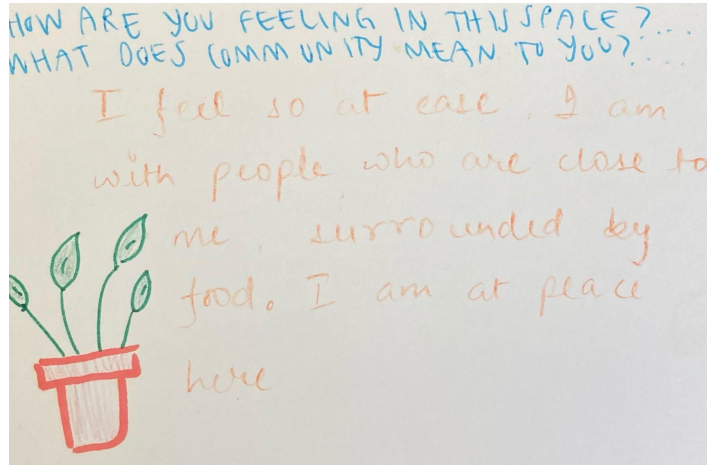 HOW ARE YOU FEELING IN THIS SPACE?...
WHAT DOES COMMUNITY MEAN TO YOU?....
I feel so at ease. I am
with people who are close to
me, surrounded by
food. I am at peace
here